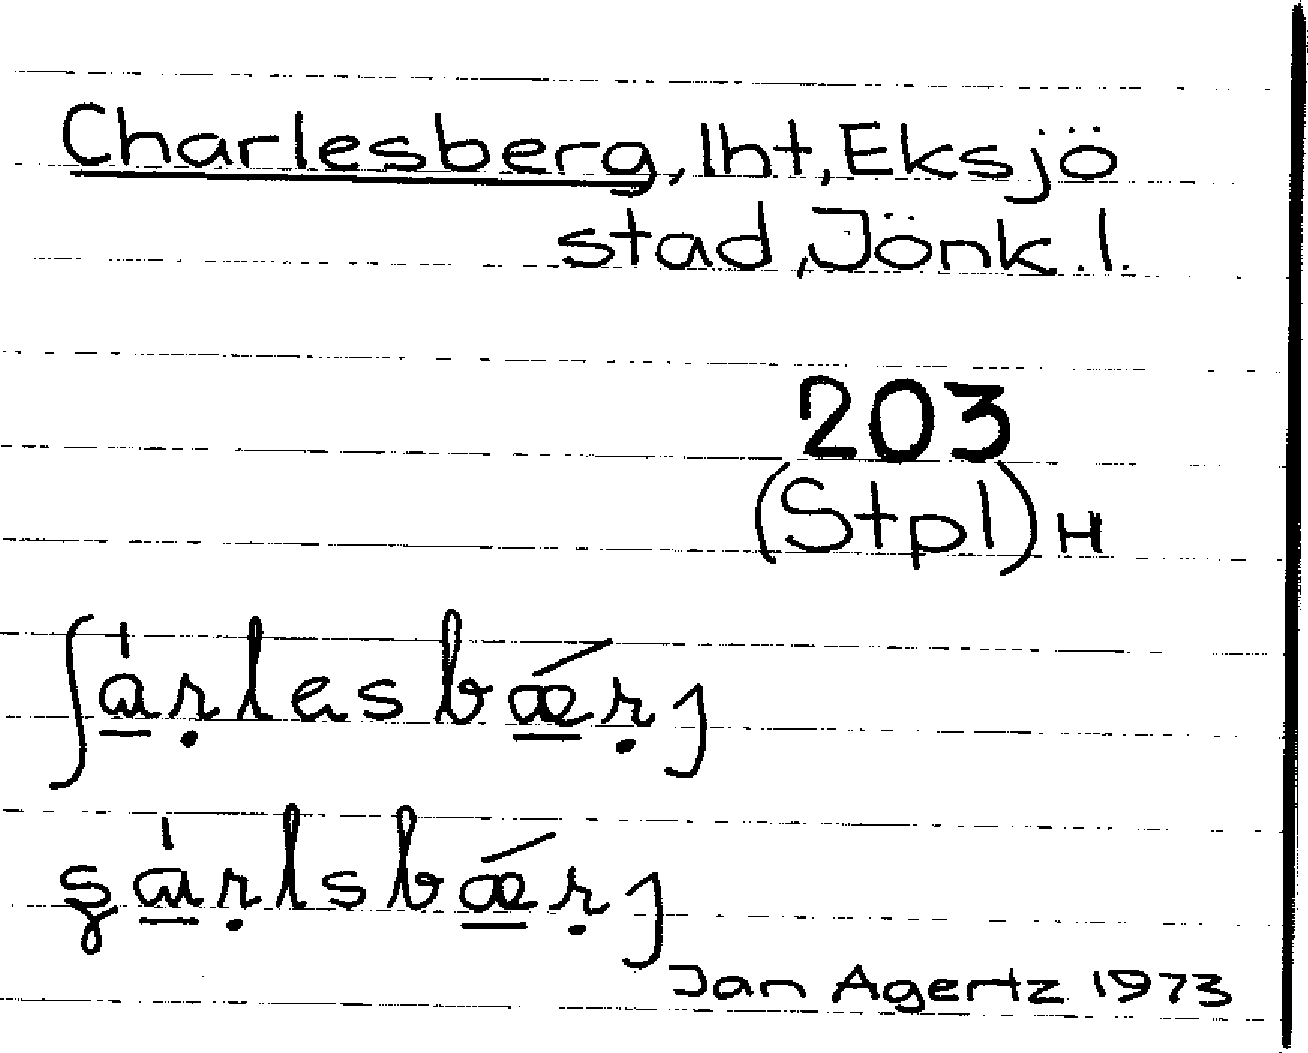 Charlesberg, lht, Eksjö
stad, Jönk. l.
203
(Stpl) H
ʃa̱̍ṛlesbǽ̱ṛj
ʂa̱̍ṛlsbǽ̱ṛj
Jan Agertz 1973